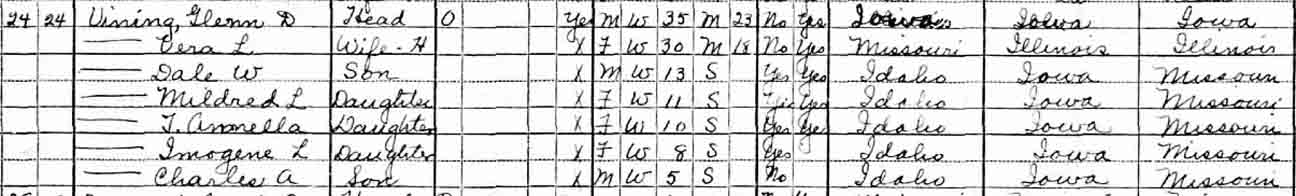 24 24 Vining, Glenn D Head O Yes M W 35 M 23 No Yes Iowa Iowa
Vera L Wife-H X F W 30 M 18 No Yes Missouri Illinois Illinois
Dale W Son X M W 13 S Yes Yes Idaho Iowa Missouri
Mildred L Daughter X F W 11 S Yes Yes Idaho Iowa Missouri
T. Daughter X F W 10 S Yes Yes Idaho Iowa Missouri
Imogene L Daughter X F W 8 S Yes Idaho Iowa Missouri
Charles A Son X M W 5 S No Idaho Iowa Missouri